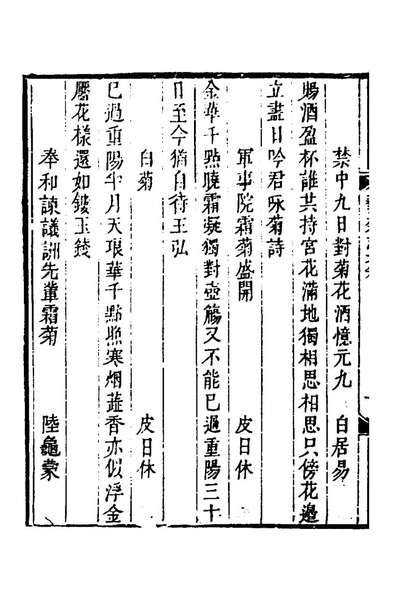 禁中九日對菊花酒憶元九　白居易
賜酒盈杯誰共持宮花滿地獨相思相思只傍花邉
立盡日吟君咏菊詩
軍事院霜菊盛開　皮日休
金華千㸃曉霜凝獨對壺觴又不能已過重陽三十
日至今猶自待王弘
白菊　皮日休
已過重陽半月天琅華千㸃照寒烟蕋香亦似浮金
靨花様還如鏤玉錢
奉和諫議詶先輩霜菊　陸龜蒙